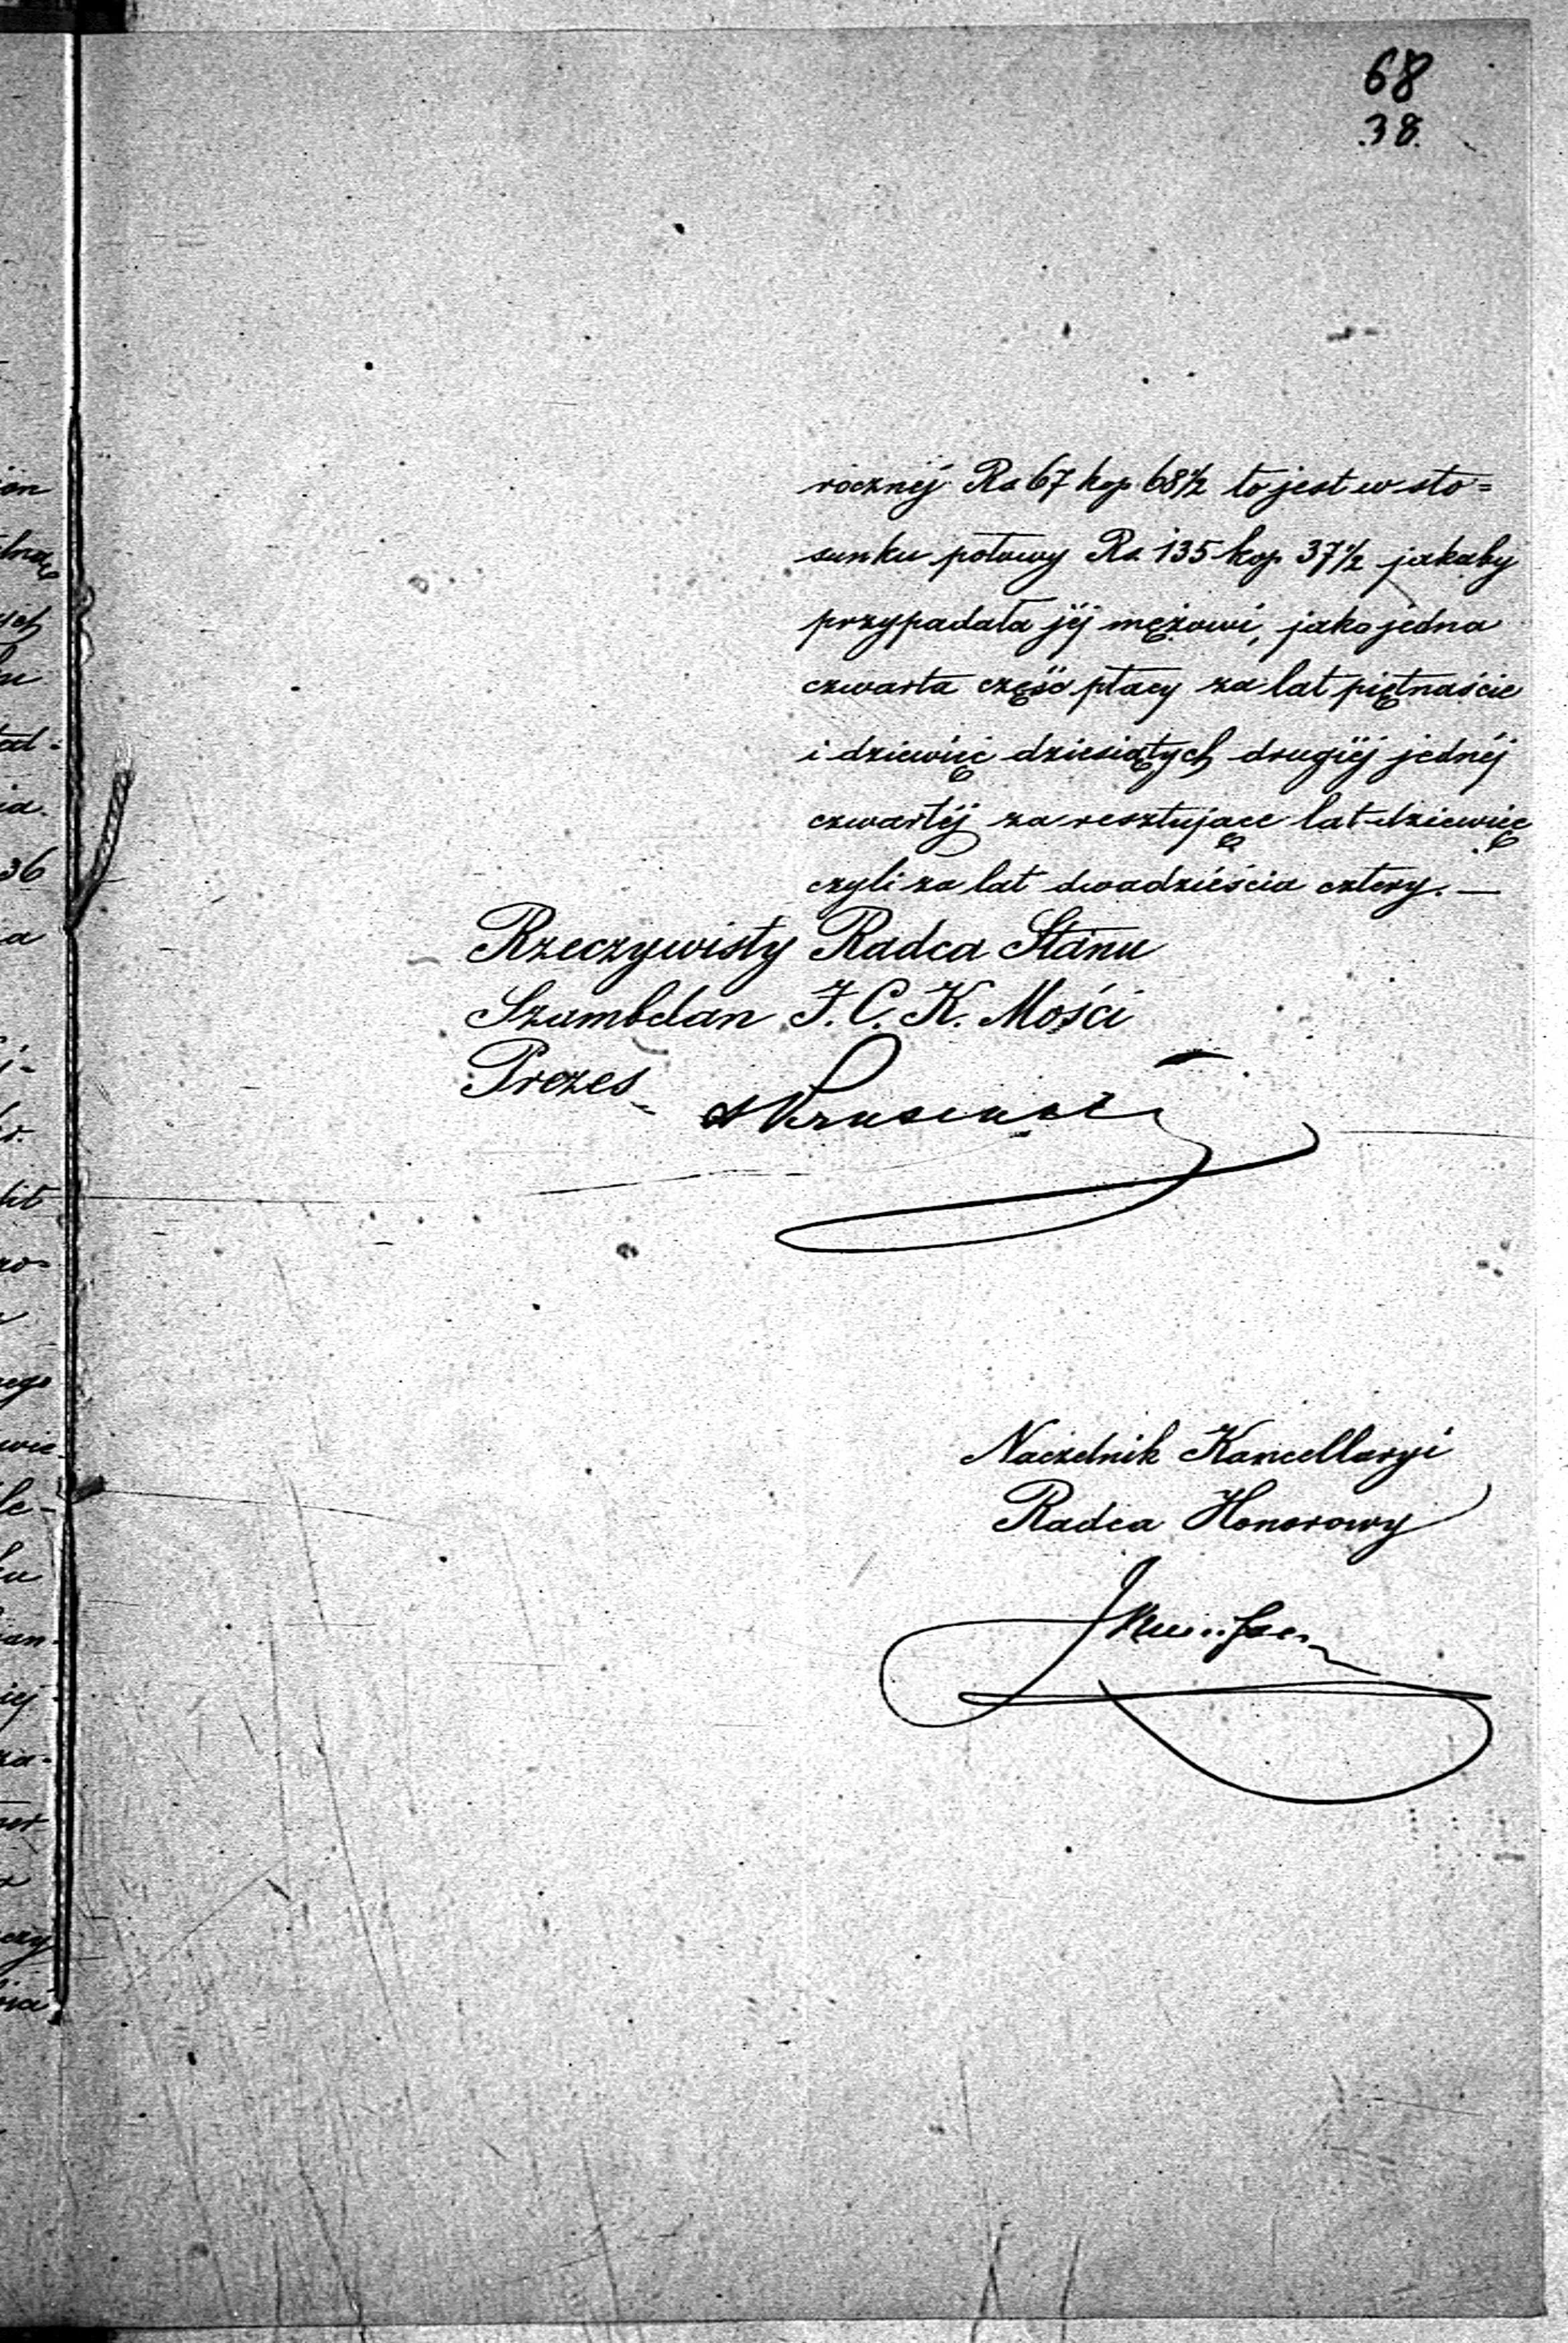 68
38.
rocznéj Rs 67 kop 68½ to jest w sto=
sunku połowy Rs. 135 kop. 37½ jakaby
przypadała jéj mężowi, jako jedna
czwarta część płacy za lat piętnaście
i dziewięć dziesiątych drugiéj jednéj
czwartéj za resztujące lat dziewięć
czyli za lat dwadzieścia cztery. —
Rzeczywisty Radca Stanu
Szambelan J. C. K. Mości
Prezes
Naczelnik Kancellaryi
Radca Honorowy